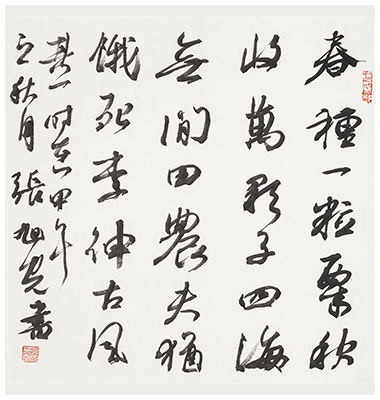 春種一粒粟秋
收萬顆子四海
無閒田農夫猶
餓死李紳古風
其一時在甲午
之秋月張旭光書